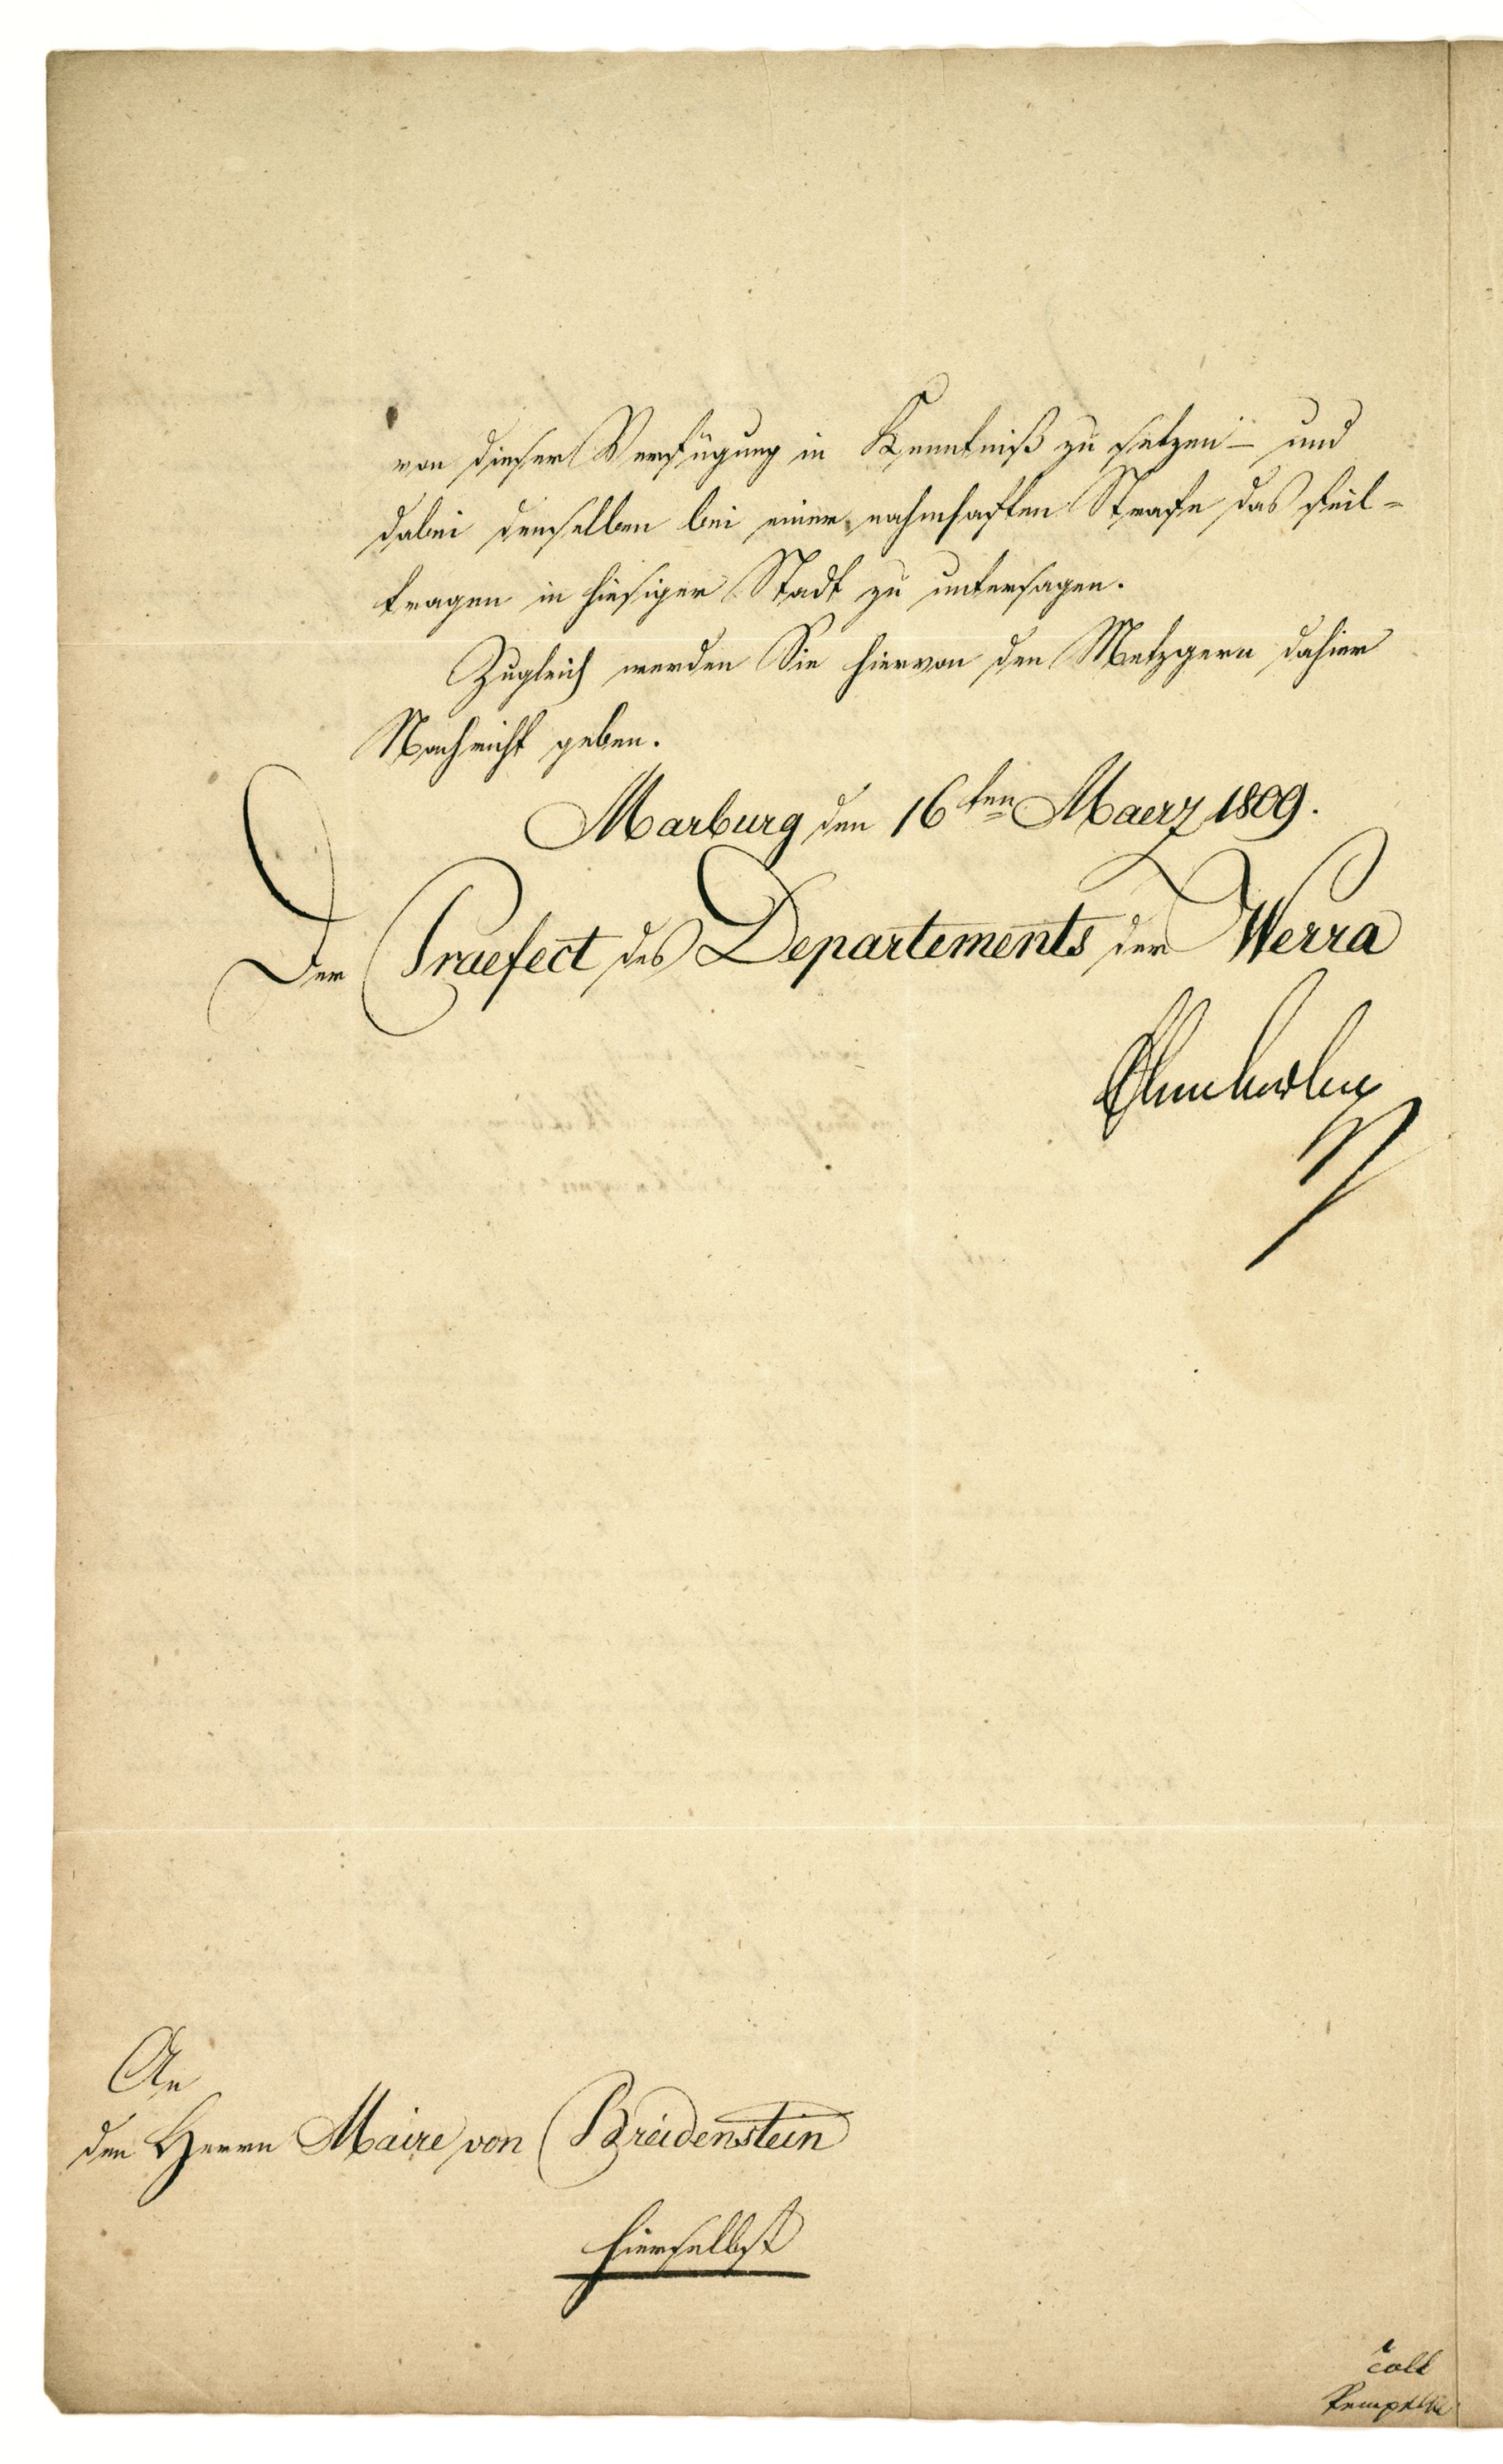 von dieser Verfügung in Kenntniß zu setzen – und
dabei demselben bei einer nahmhaften Strafe das feil-
tragen in hiesiger Stadt zu untersagen.
Zugleich werden Sie hiervon den Metzgern dahier
Nachricht geben.
Marburg den 16ten Maerz 1809.
Der Praefect des Departements der Werra
An
den Herrn Maire von Breidenstein
hierselbst
coll